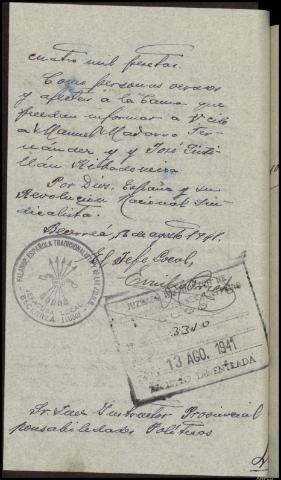 cuatro mil pesetas.
Como personas veraces
y afectas a la Causa que
puedan informar a V cito
a Manuel Navarro Fer-
nández y José
Ribadeneira
Por Dios, España y su
Revolución Nacional Sin-
dicalista.
Becerreá, 12 de agosto 1941.
El Jefe Local,
Emilio
FALANGE ESPAÑOLA TRADICIONALISTA Y DE LAS J.O.N.S.
JEFATURA LOCAL
BECERREA (LUGO)
JUZGADO
3340
13 AGO. 1941
REGISTRO DE ENTRADA
Sr. Juez Instructor Provincial
ponsabilidades Políticas